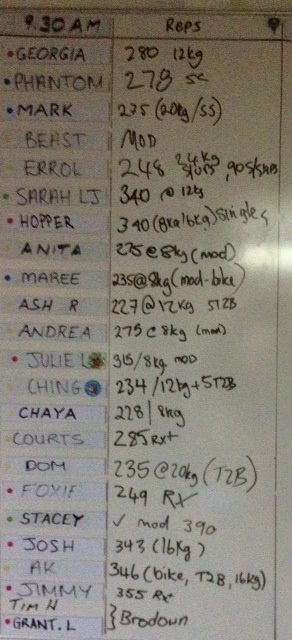 9.30 AM Reps
GEORGIA 280 12kg
PHANTOM 278 SC
MARK 275 (20kg/SS)
BEAST MOD
ERROL 248 24kg
SARAH LJ 340 @ 12kg
HOPPER 340 (8kg/6kg) singles
ANITA 275@8kg (mod)
MAREE 235@8kg (mod-bike)
ASH R 227@12kg 5T2B
ANDREA 275@8kg (mod)
JULIE L 315/8kg MOD
CHING 234/12kg+5T2B
CHAYA 228/8kg
COURTS 285 Rx+
DOM 235@20kg (T2B)
FOXIE 249 RX
STACEY ✓ mod 390
JOSH 343 (16kg)
AK 346 (bike, T2B, 16kg)
JIMMY 355 Rx
TIM H
GRANT.L } Brodown